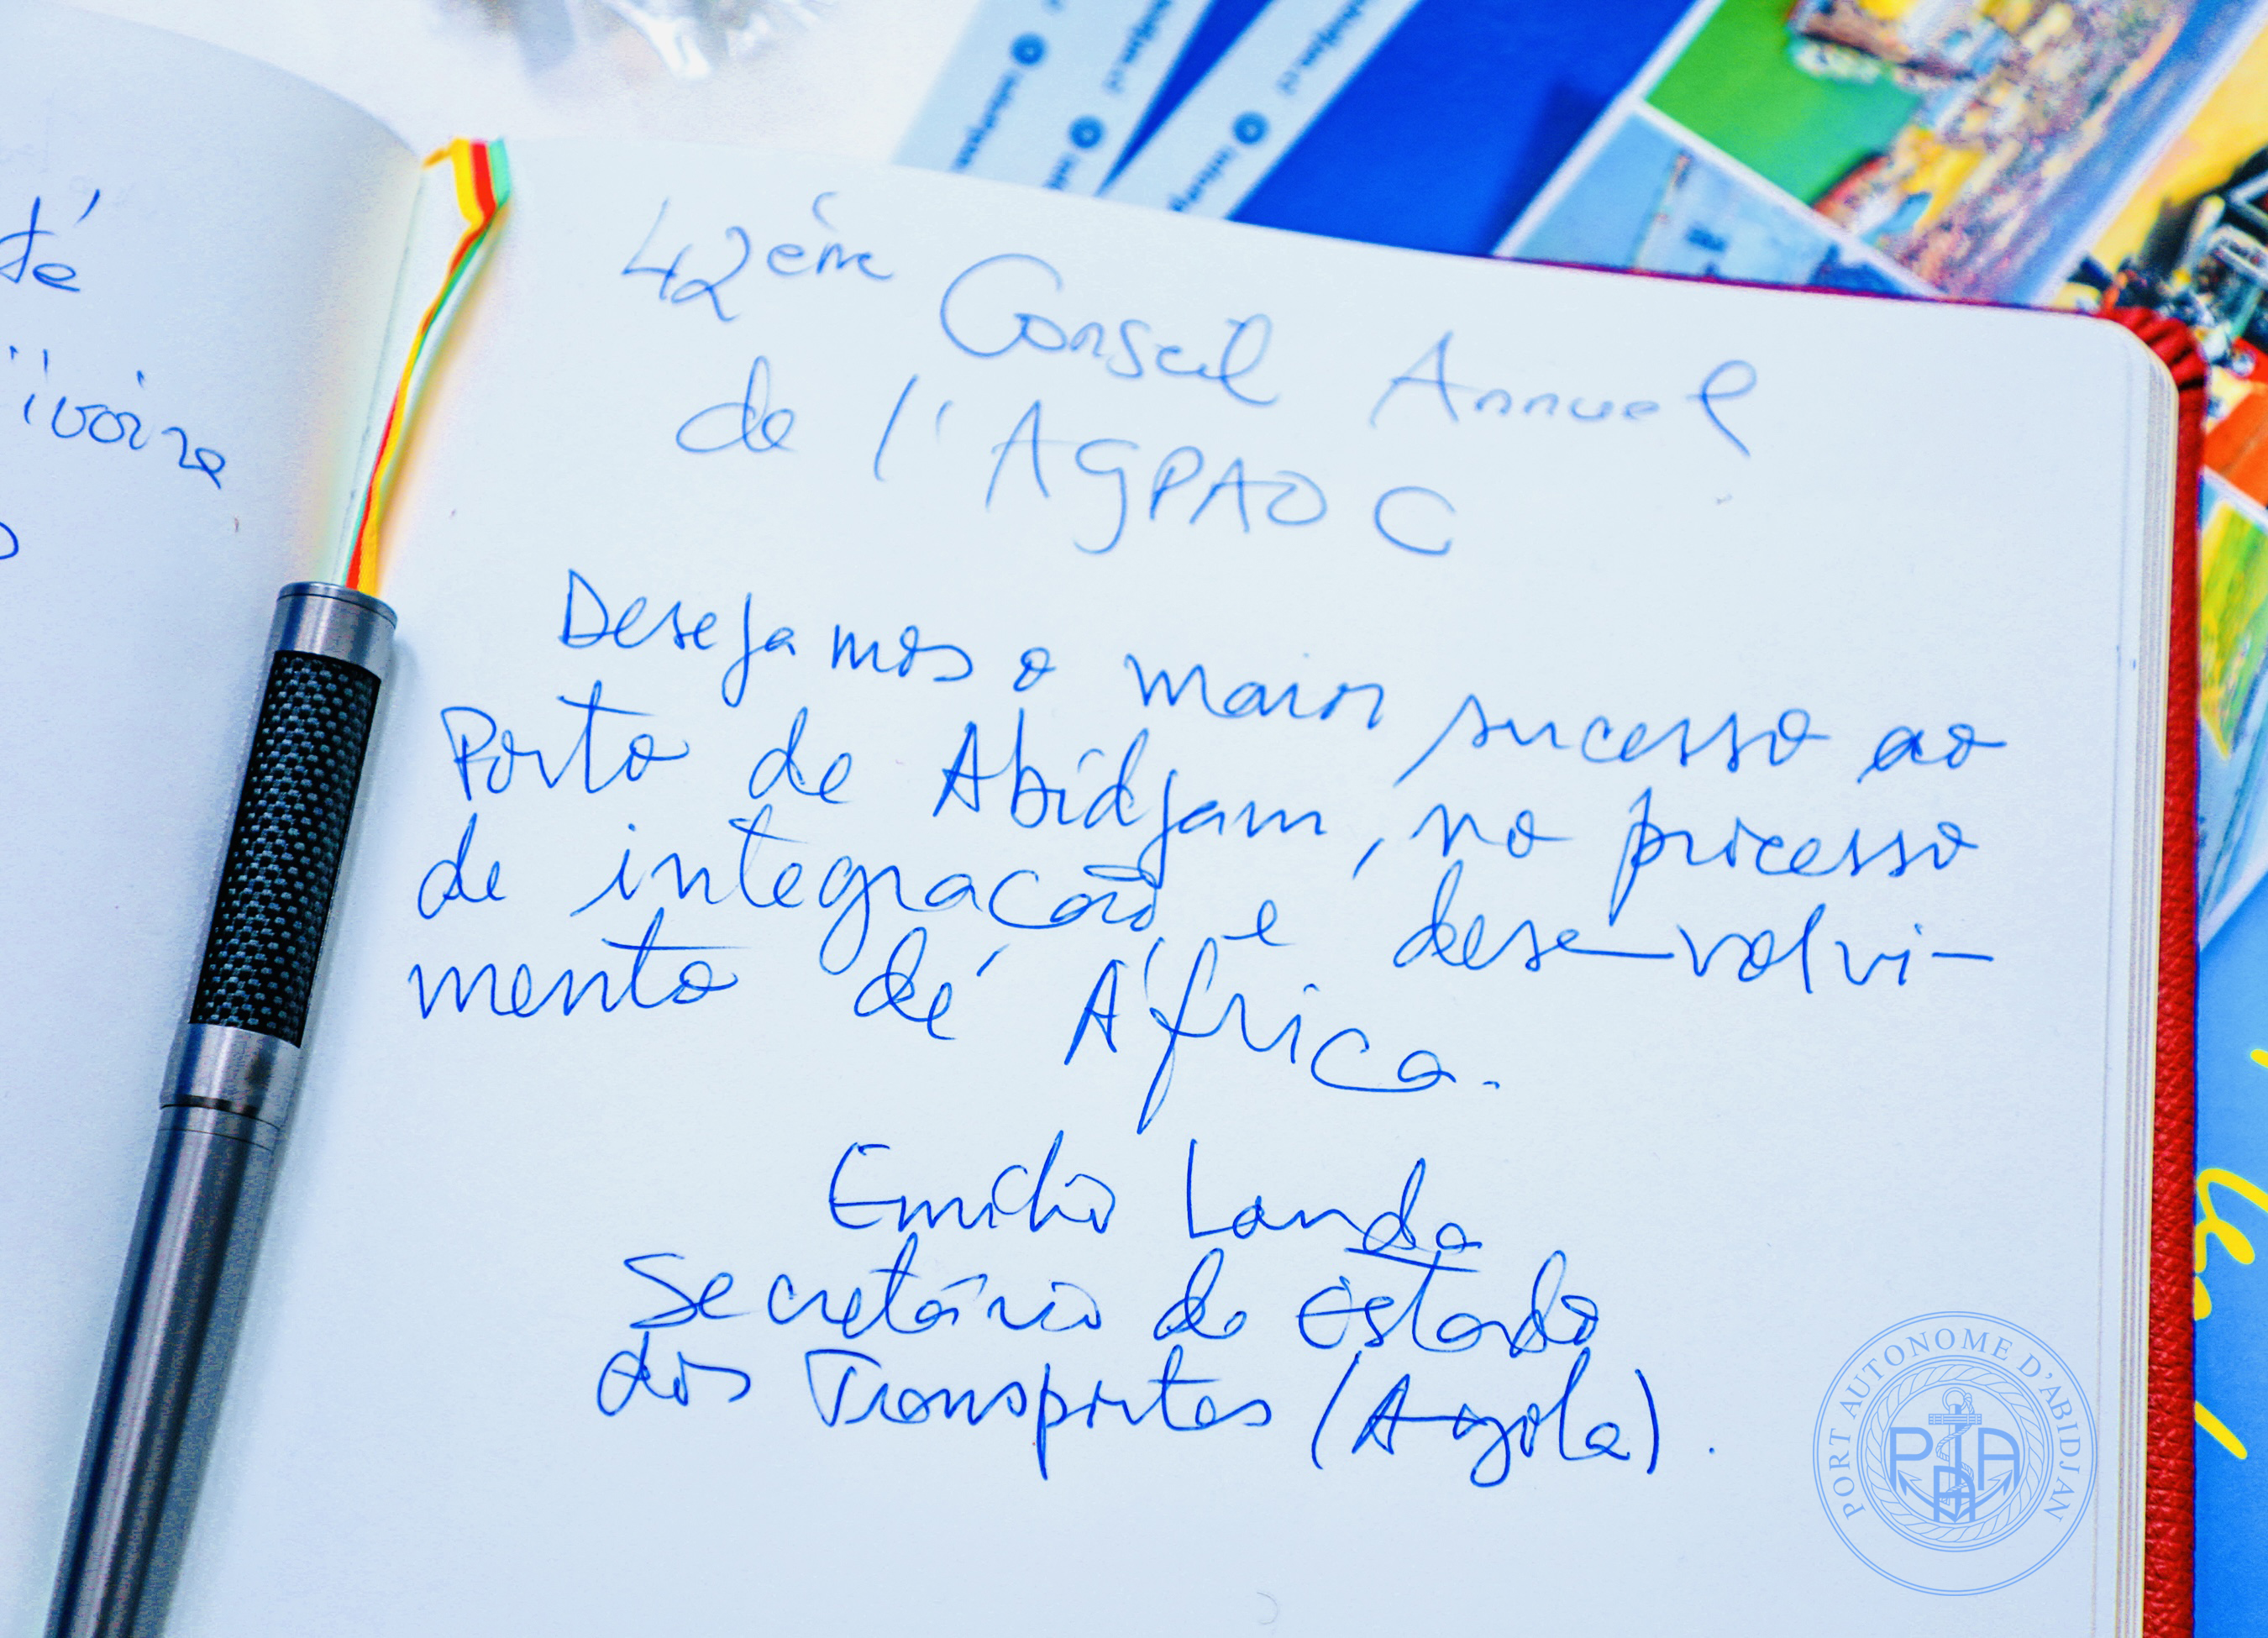 té
ivoire
42ème Conseil Annuel
de l'AGPAOC
Desejamos o maior sucesso ao
Porto de Abidjam, no processo
de integração e desenvolvi-
mento dé África.
Emílio Landa
Secretário do Estado
dos Transportes (Agola).
PORT AUTONOME D'ABIDJAN
PAA